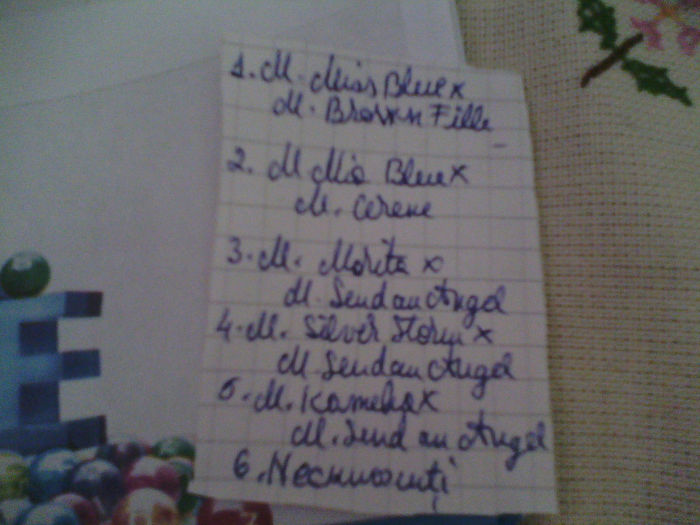 1. M. Miss Blue x
M. Brown Fille
2. M Mia Blue x
M. Cerene
3. M. Morita x
M. Send an Angel
4. M. Silver Storm x
M Send an Angel
5. M. Kamelia x
M. Send an Angel
6. Necunoscuți